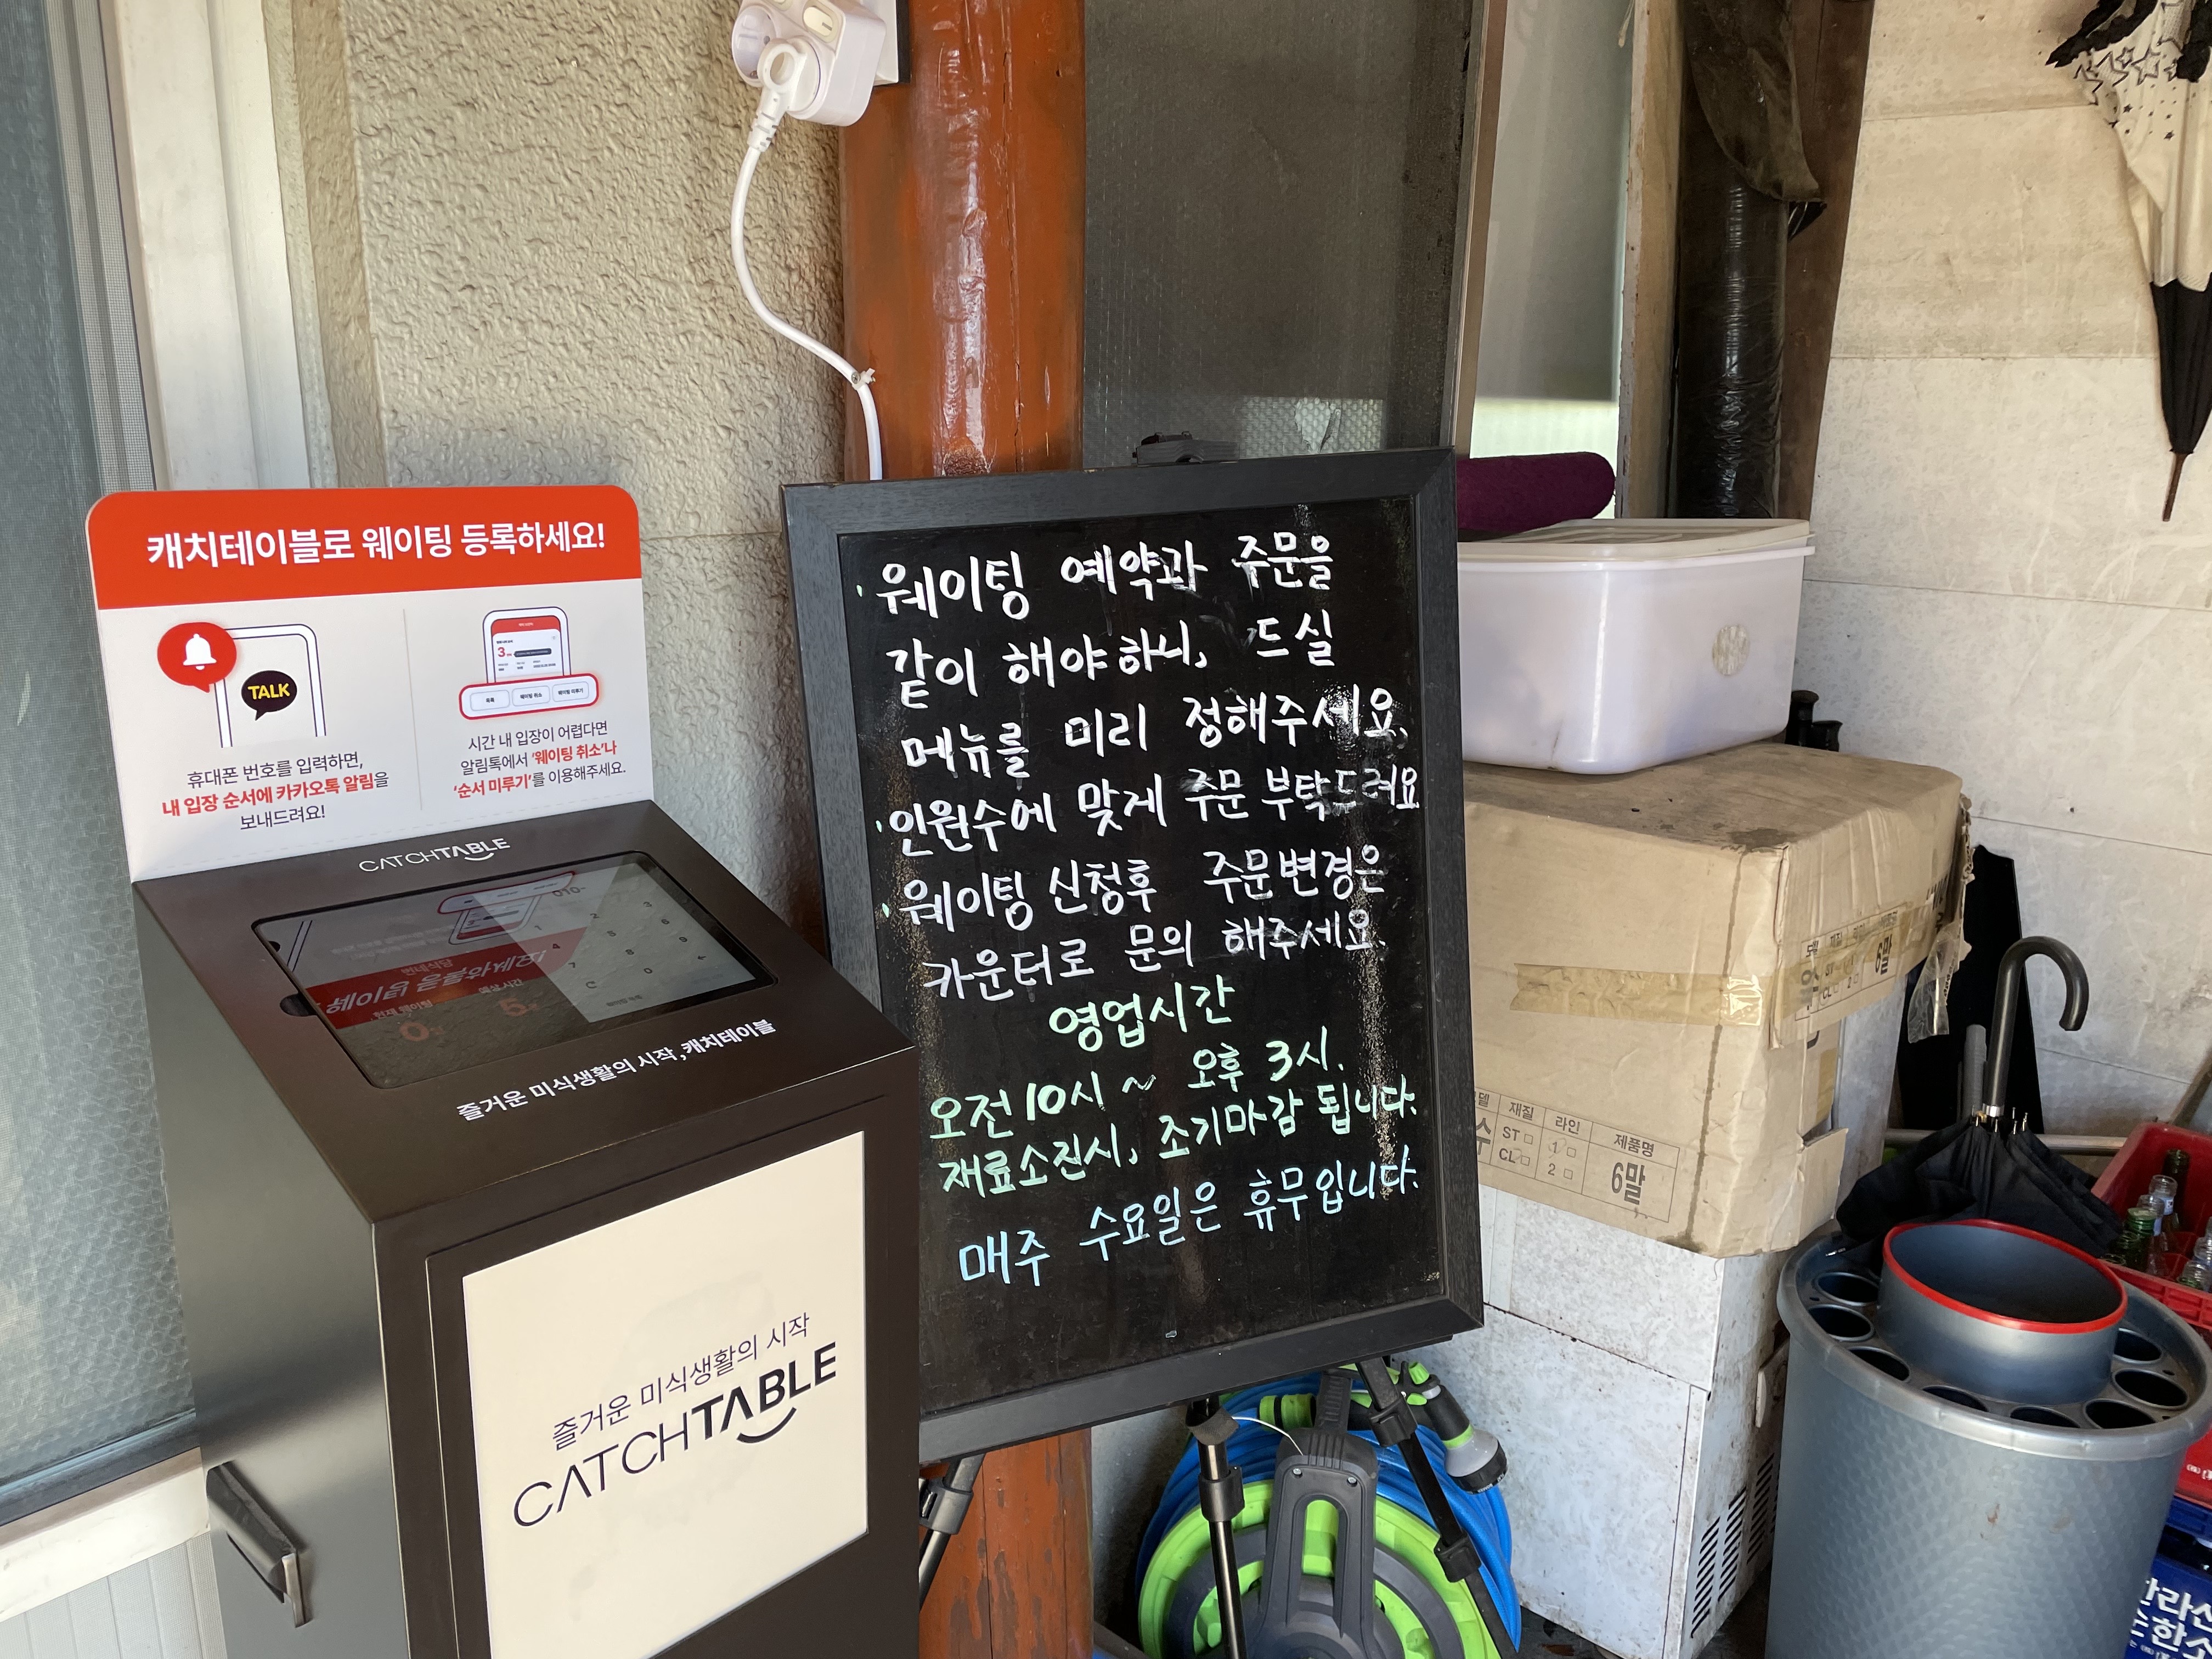 캐치테이블로 웨이팅 등록하세요!
TALK
휴대폰 번호를 입력하면,
내 입장 순서에 카카오톡 알림을
보내드려요!
3
목록
웨이팅 취소
웨이팅 미루기
시간 내 입장이 어렵다면
알림톡에서 '웨이팅 취소'나
'순서 미루기'를 이용해주세요.
CATCHTABLE
010-
현재 웨이팅
예상시간
0팀
5분
1
2
3
4
5
6
7
8
9
C
0
즐거운 미식생활의 시작, 캐치테이블
즐거운 미식생활의 시작
CATCHTABLE
· 웨이팅 예약과 주문을
같이 해야하니, 드실
메뉴를 미리 정해주세요.
· 인원수에 맞게 주문 부탁드려요
· 웨이팅 신청후 주문변경은
카운터로 문의 해주세요.
영업시간
오전10시 ~ 오후 3시.
재료소진시, 조기마감 됩니다.
매주 수요일은 휴무입니다.
6말
재질
라인
제품명
ST □
1 □
CL □
2 □
6말
한라산